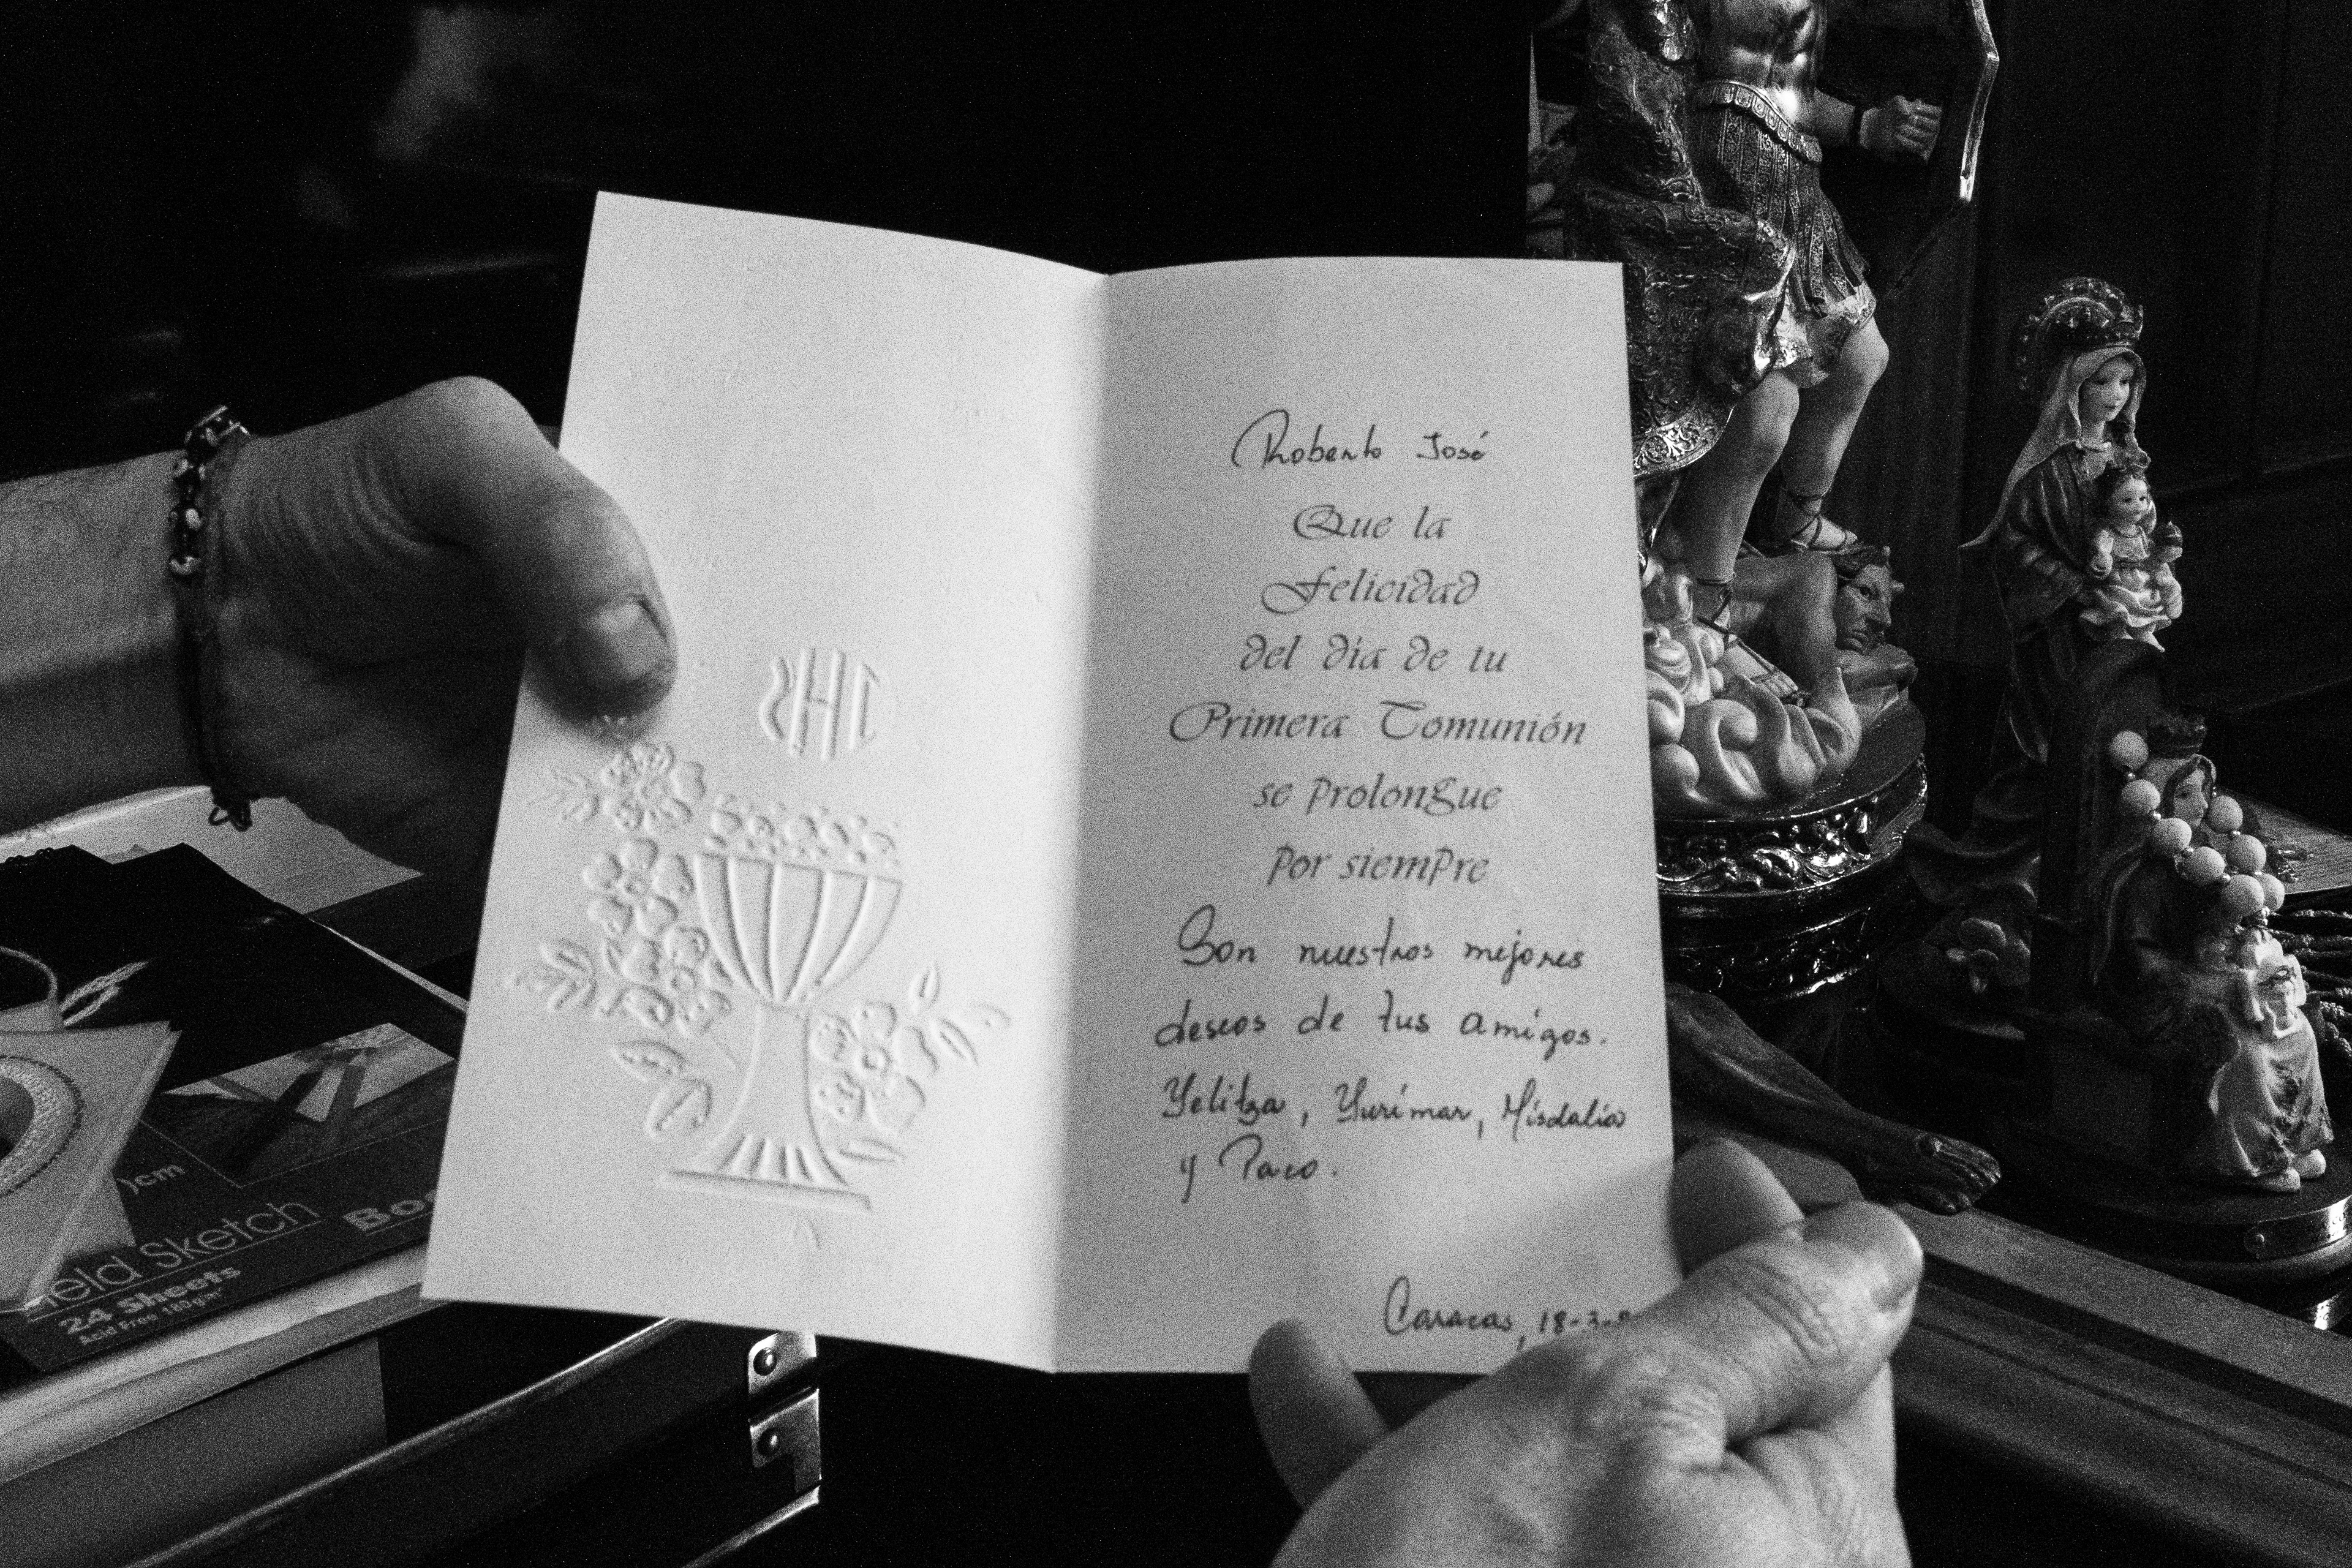 IHS
Roberto José
Que la
Felicidad
del día de tu
Primera Comunión
se prolongue
por siempre
Son nuestros mejores
deseos de tus amigos.
Yelitza, Yurimar, Misdalia
y Paco.
Caracas, 18-3-
)cm
ield Sketch
Boo
24 Sheets
Acid Free 160gm